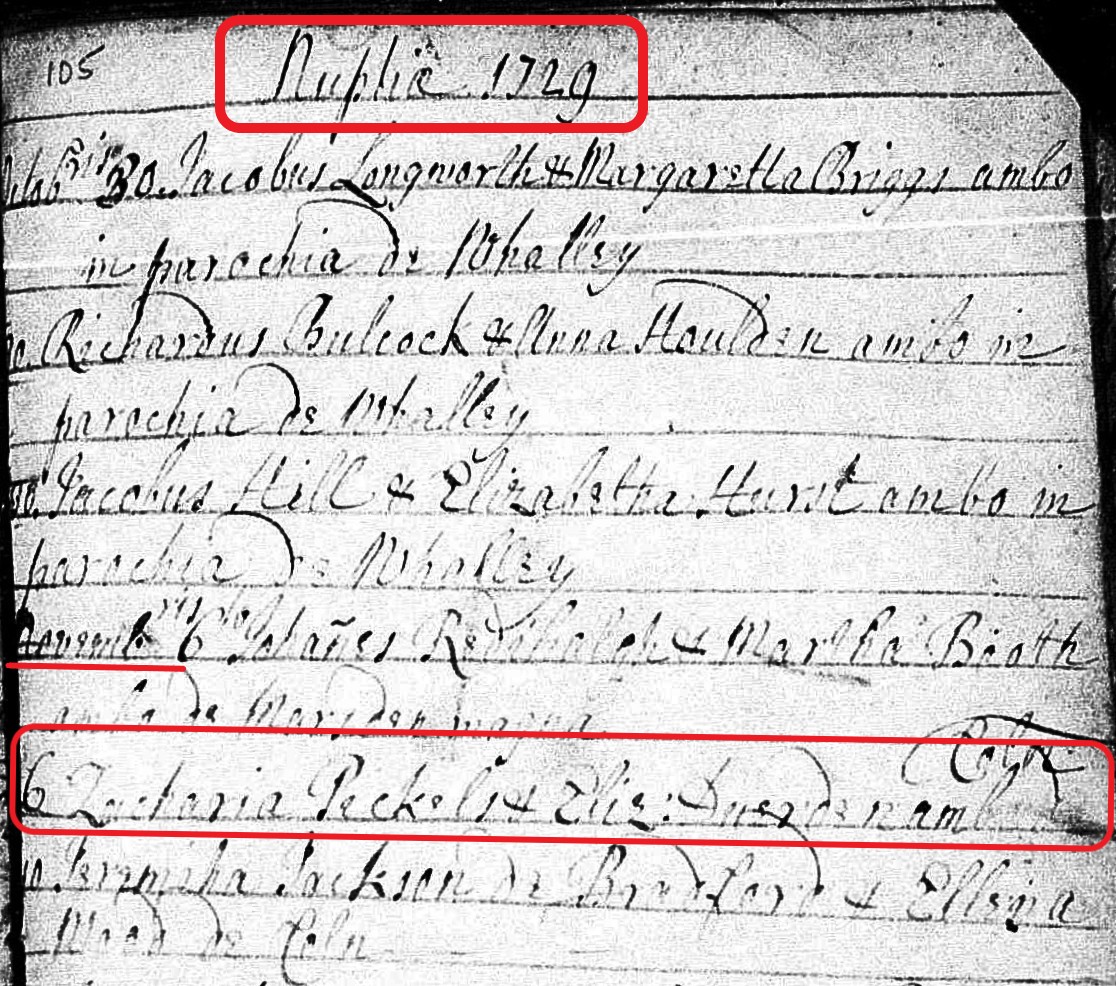 105 Nuptiæ 1729
30 Jacobus Longworth & Margaretta Briggs ambo
in parochia de Whalley
Richardus Bulcock & Anna Houlden ambo in
parochia de Whalley
Jacobus Hill & Elizabetha Hurst ambo in
parochia de Whalley
6 Johañes & Martha Booth
ambo de Marsden magna
Coln
6 Zacharia Peckels & Eliz: Duerden ambo
10 Jeremiha Jackson de Bradford & Ellena
Wood de Coln